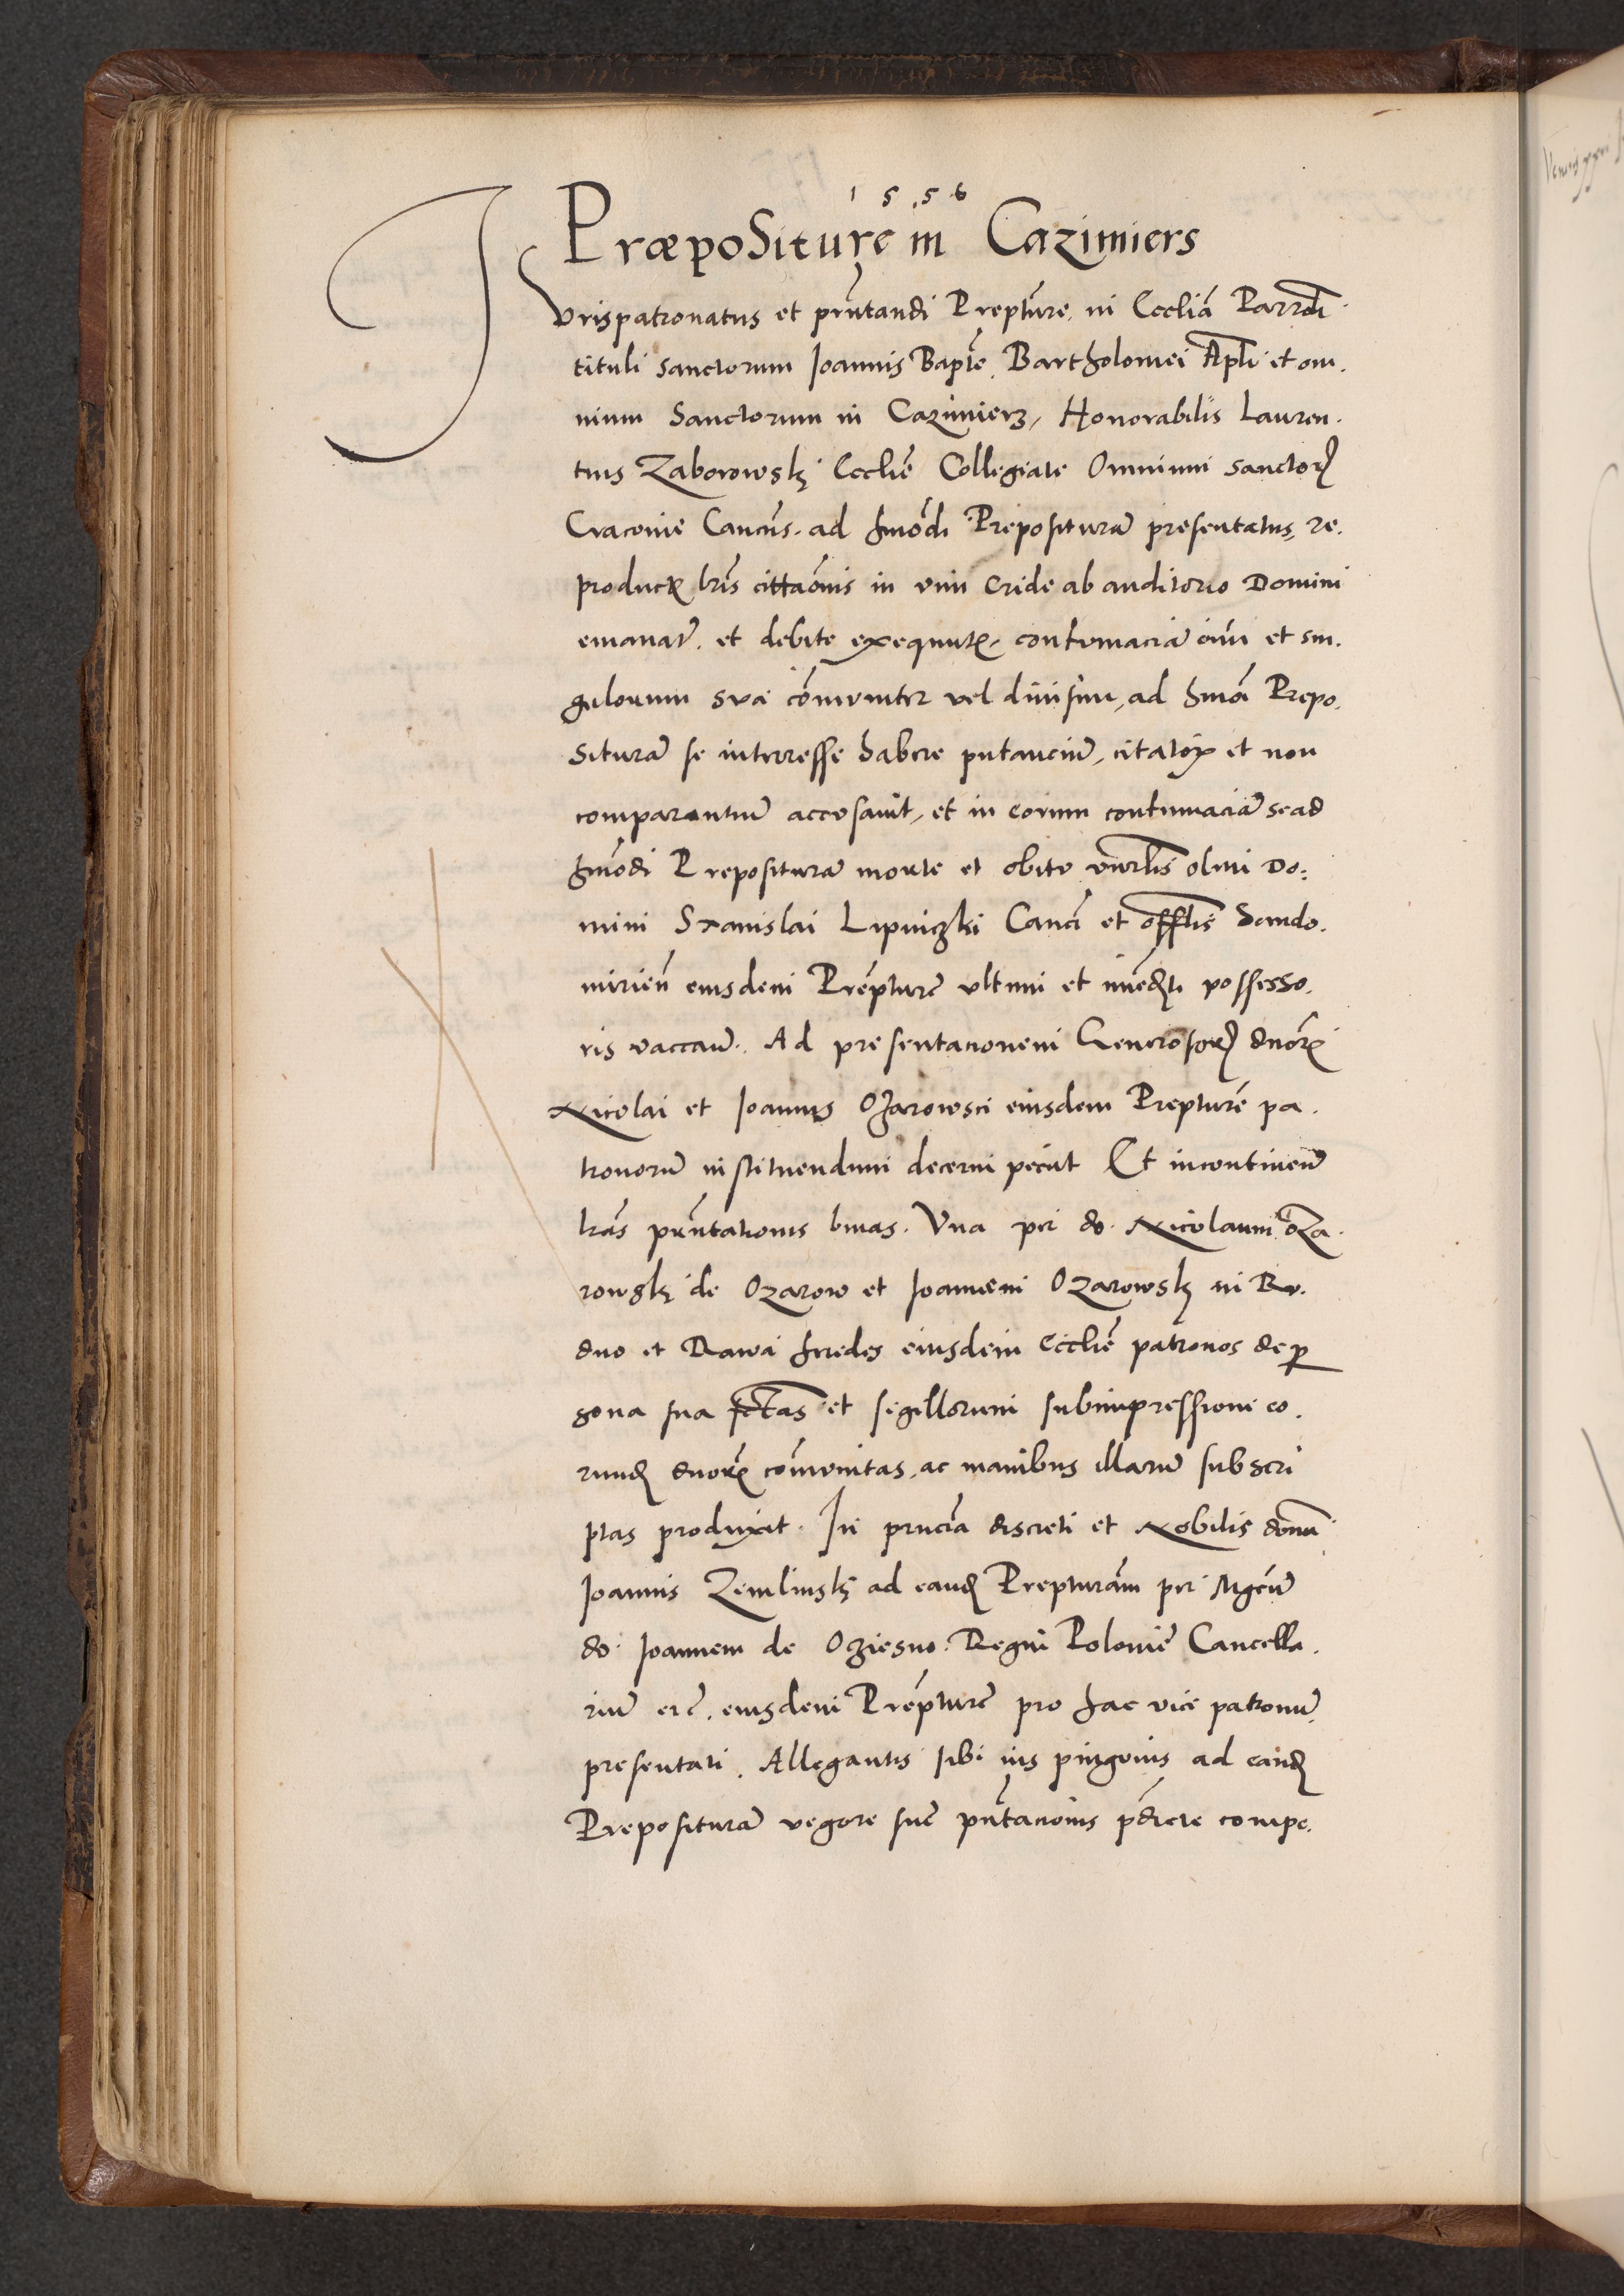 1 5 5 6
Præpositurę in Cazimiers
Iurispatronatus et pñtandi Prepture in Eccliã Parrohli
tituli sanctorum Joannis Bapte Bartholomei Apli et om.
nium Sanctorum in Cazimierz, Honorabilis Lauren.
tius Zaborowsky Ecclie Collegiate Omnium sanctor
Cracovie Cancus. ad hmõdi Prepositurã presentatus, re.
product lris cittaõnis in vim Cride ab auditorio Domini
emanat. et debite exequut contumaciã oim et sin.
gulorum sua cõmuniter vel divisim, ad hmõi Prepo.
siturã se interesse habere putanciũ, citator et non
comparantiũ accusavit, et in eorum contumaciã se ad
hmõdi Prepositurã morte et obitu vnrlis olim Do:
mini Stanislai Lipniczki Canci et offlis Sando.
mirien eiusdem Prepture ultimi et imedti possesso.
ris vaccan. Ad presentationem Generosor dnor
Nicolai et Joannis Ozarowsci eiusdem Prepture pa.
tronorũ instituendum decerni peciit Et incontinen
lras pñtationis binas. Una per do. Nicolaum Oza.
rowsky de Ozarow et Joannem Ozarowsky in Ru.
dno et Rawa heredes eiusdem Ecclie patronos de per
sona sua fctas et sigillorum subimpressione eo.
rund dnor cõmunitas, ac manibus illarũ subscri
ptas produxit. In pncia discreti et Nobilis domi
Joannis Zemlinsky ad eand Prepturam per Mgcũ
do. Joannem de Oziesno. Regni Polonie Cancella.
riũ etc. eiusdem Prepture pro hac vice patronũ
presentati. Allegantis sibi ius pinguius ad eand
Prepositurã vegore sue pñtationis pdicte compe.